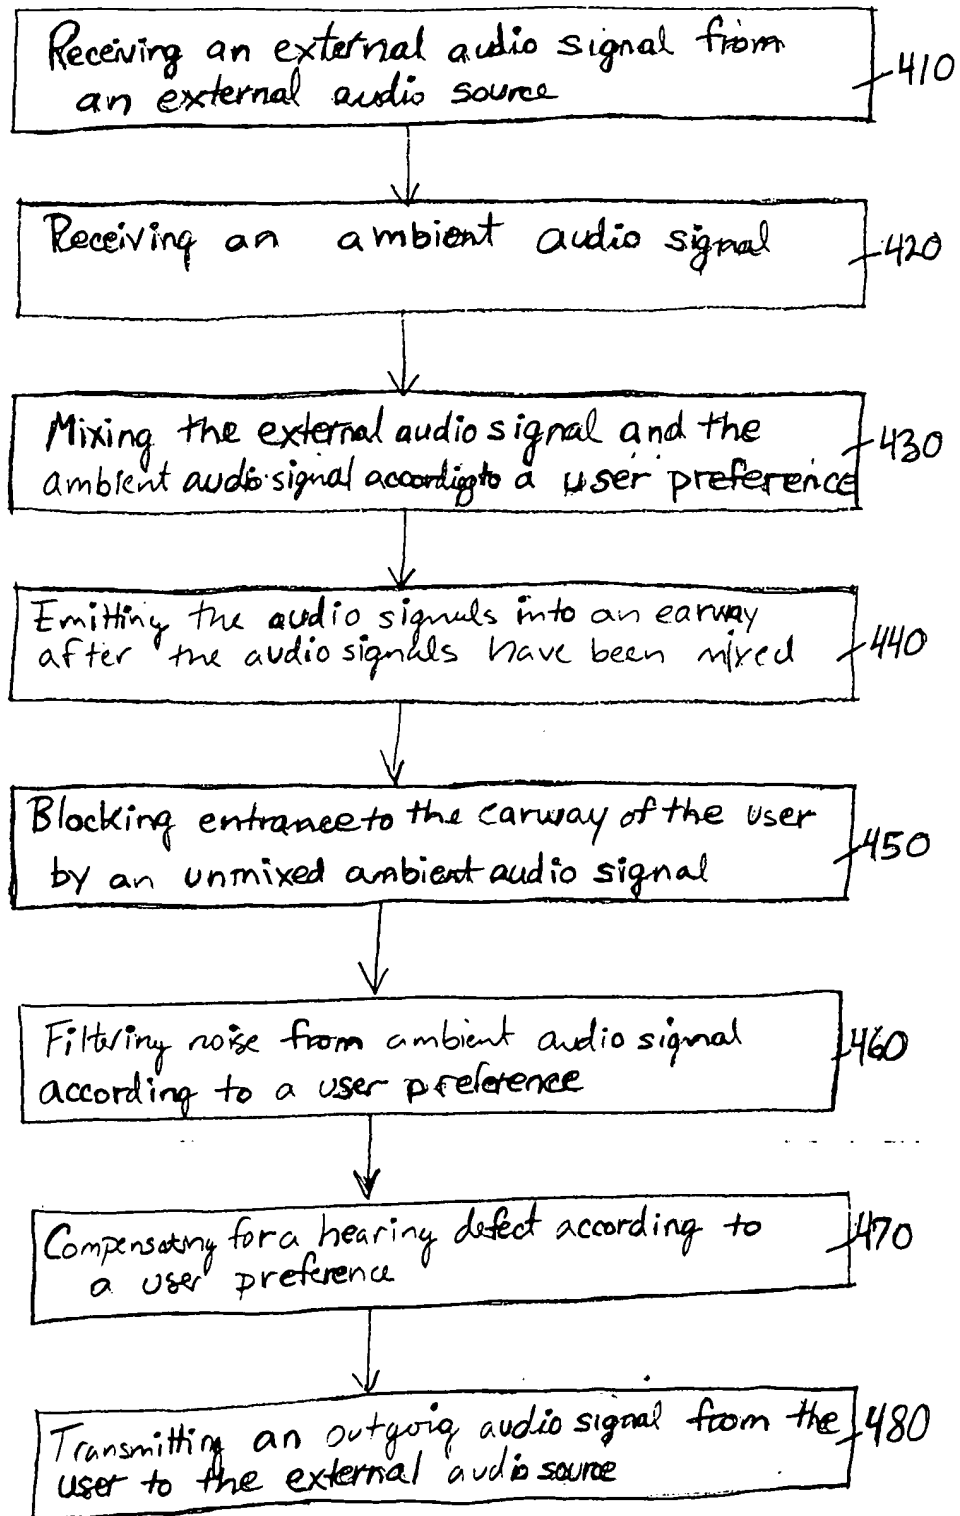 Receiving an external audio signal from
an external audio source
410
Receiving an ambient audio signal
420
Mixing the external audio signal and the
ambient audio signal according to a user preference
430
Emitting the audio signals into an earway
after the audio signals have been mixed
440
Blocking entrance to the earway of the user
by an unmixed ambient audio signal
450
Filtering noise from ambient audio signal
according to a user preference
460
Compensating for a hearing defect according to
a user preference
470
Transmitting an outgoig audio signal from the
user to the external audio source
480